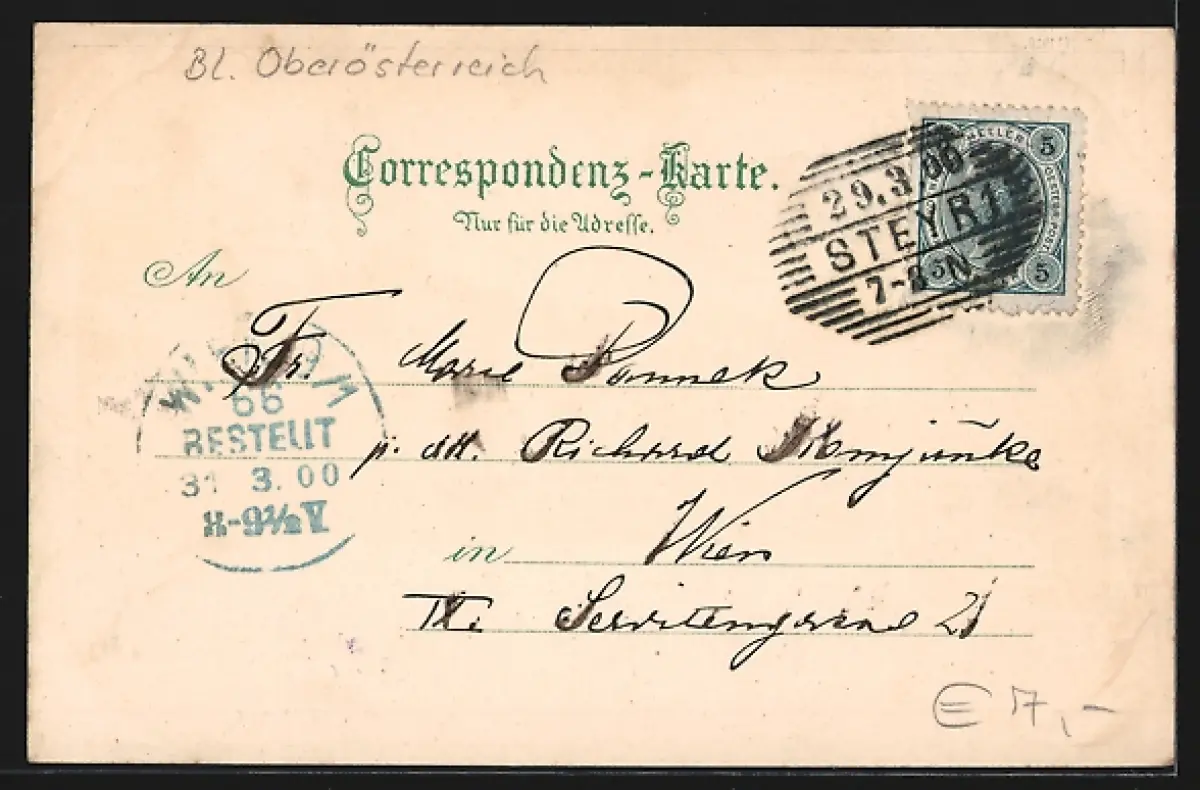 Bl. Oberösterreich
Correspondenz-Karte.
Nur für die Adresse.
HELLER
5
5
5
29.3.00
STEYR 1
7-8 N
An
Fr. Marie Pannek
p. adr. Richard
in Wien
IX. Servitengasse 21
WIEN
66
BESTELLT
31 3.00
8-9½V
€ 7,-